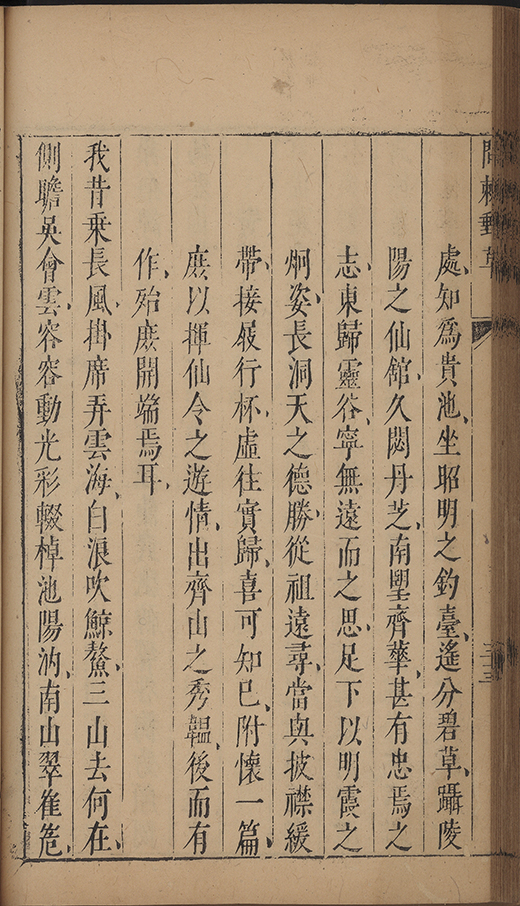 問棘郵草
處知爲貴池坐昭明之釣臺遙分碧草躡陵
陽之仙館久閟丹芝南望齊華甚有忠焉之
志東歸靈谷寧無遠而之思足下以明霞之
炯姿長洞天之德勝從祖遠尋當與披襟緩
帶接屐行杯虛往實歸喜可知已附懷一篇
庶以揮仙令之遊情出齊山之秀韞後而有
作殆庶開端焉耳
我昔乘長風掛席弄雲海白浪吹鯨鰲三山去何在
側瞻吳會雲容容動光彩輟棹池陽汭南山翠崔